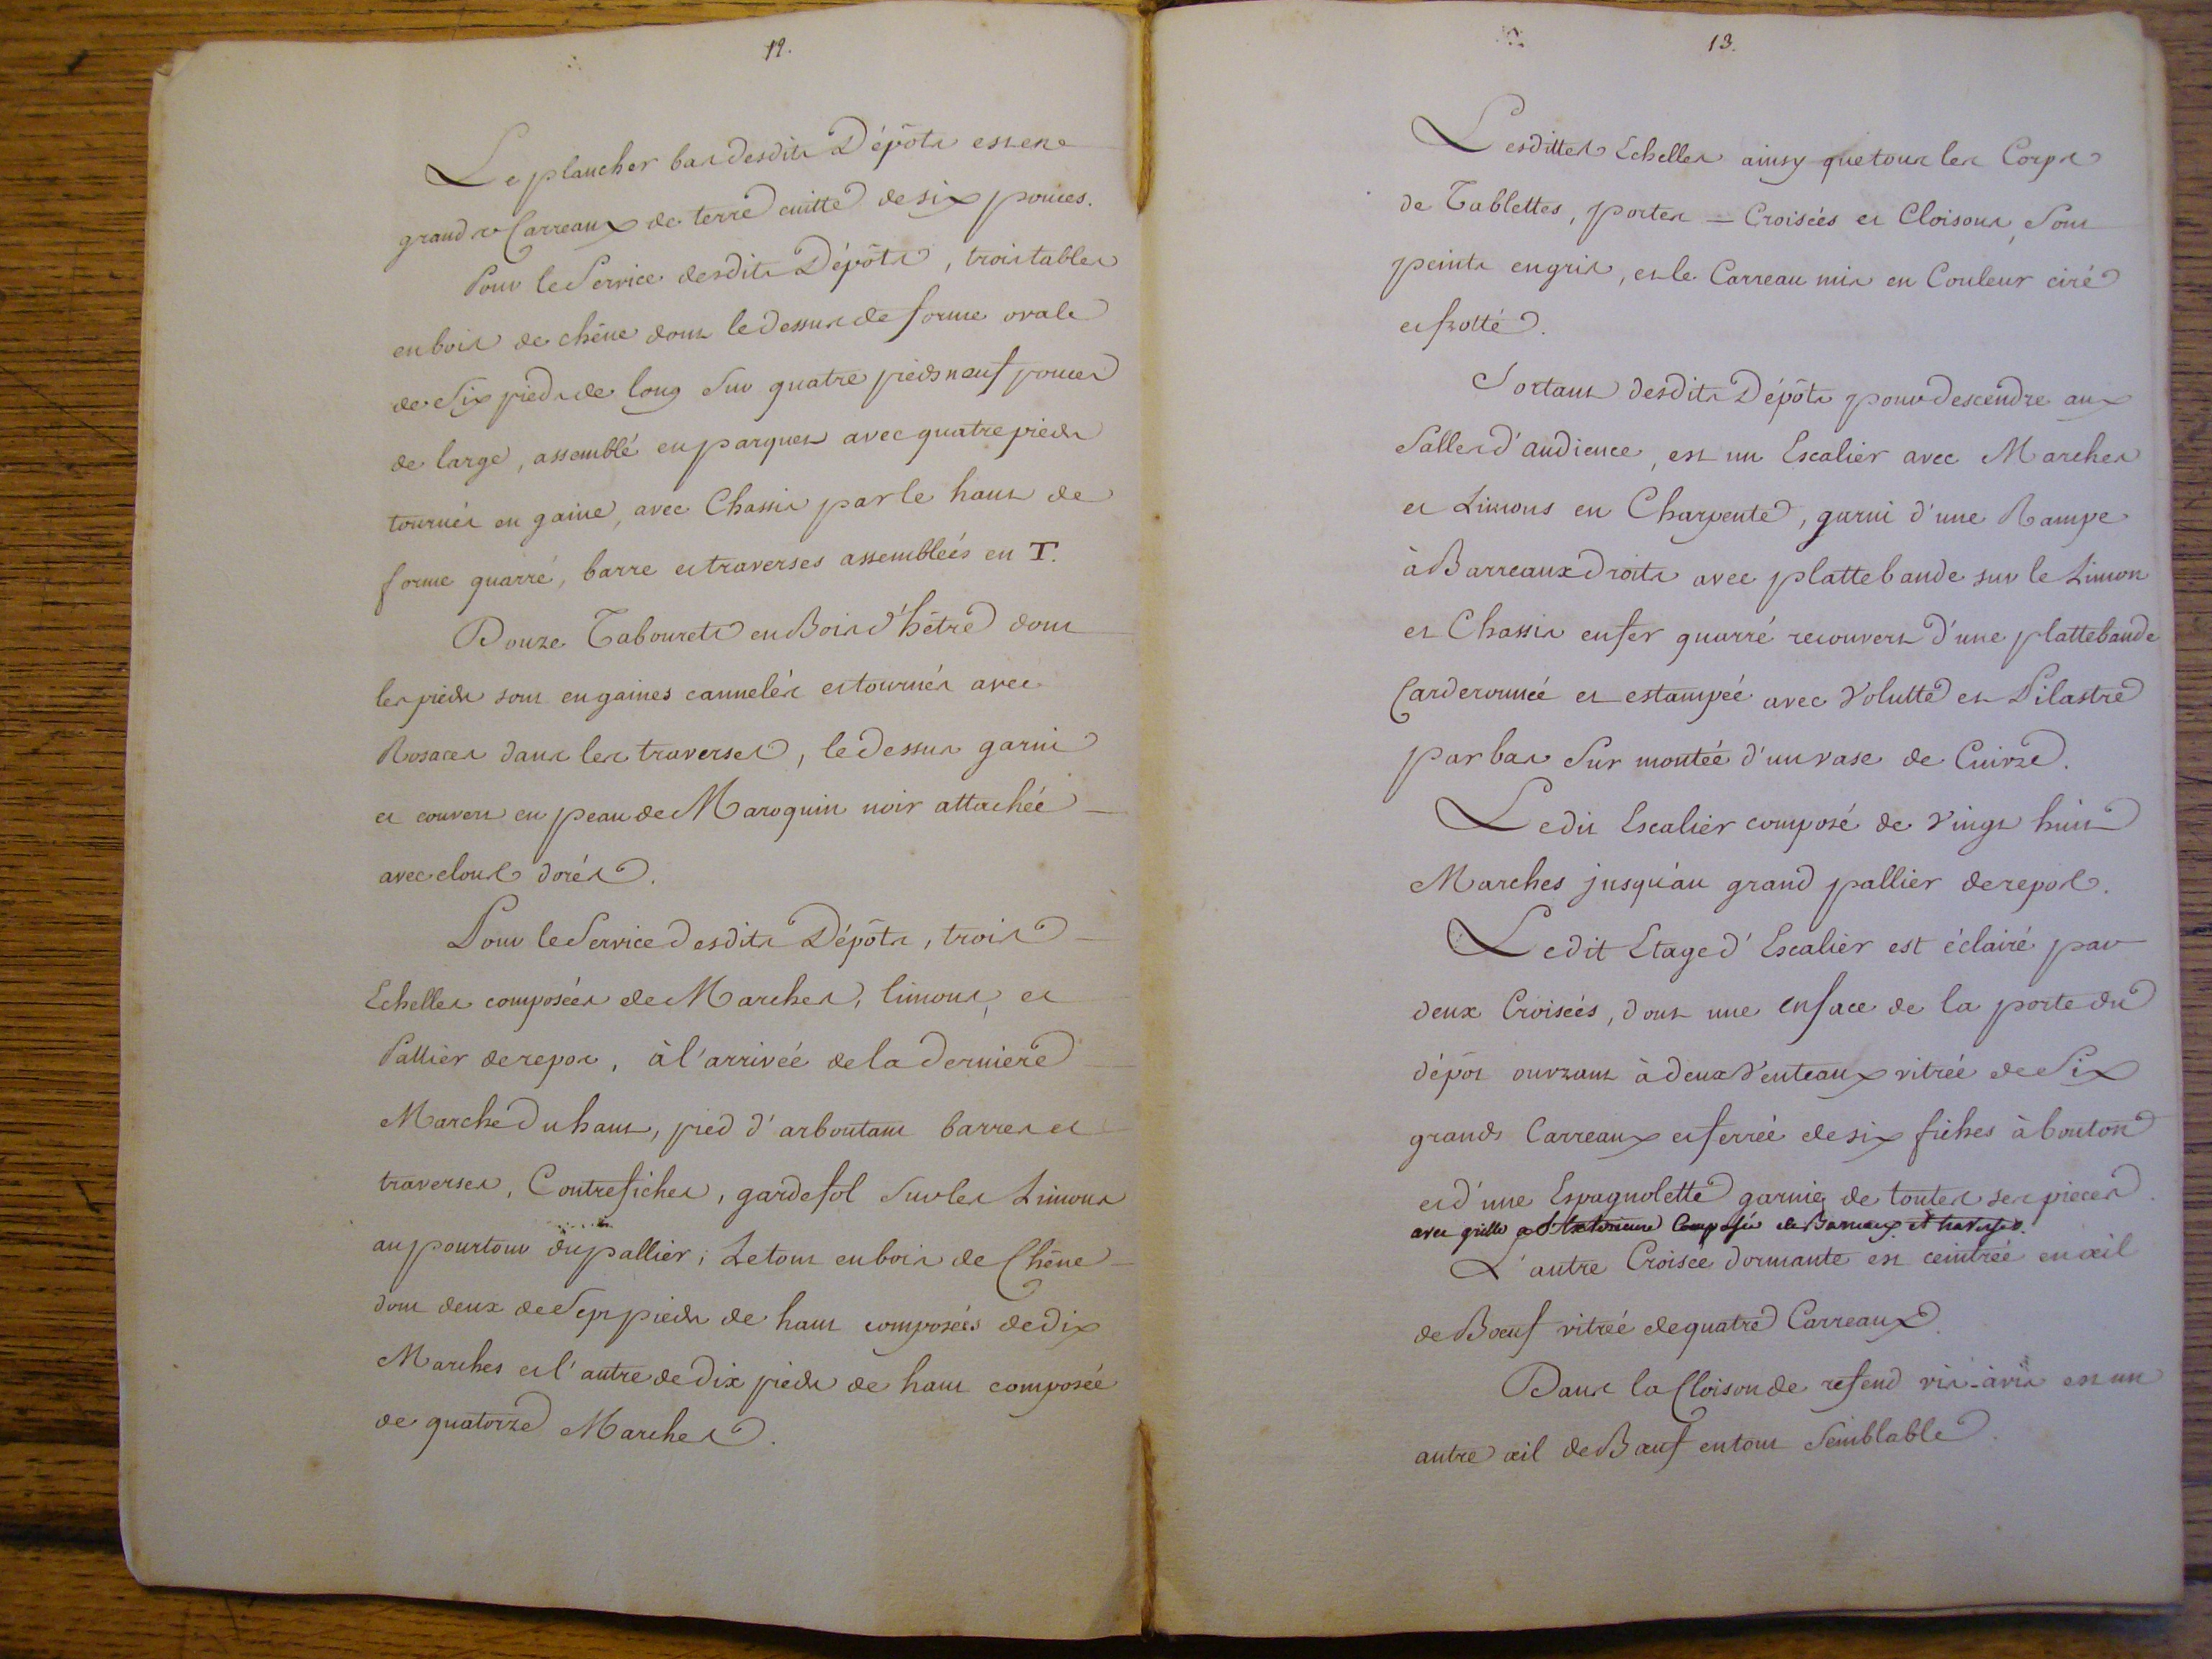 12.
Le plancher bas desdits Dépôts est en
grands Carreaux de terre cuitte de six pouces.
Pour le Service desdits Dépôts, trois tables
en bois de chêne dont le dessus de forme ovale
de Six pieds de long Sur quatre pieds neuf pouces
de large, assemblé en parquet avec quatre pieds
tournés en gaine, avec Chassis par le haut de
forme quarré, barre et traverses assembleés en T.
Douze Tabourets en Bois d'hêtre dont
les pieds sont en gaines cannelés et tournés avec
Rosaces dans les traverses, le dessus garni
et couvert en peau de Maroquin noir attachée
avec cloux dorés.
Pour le Service desdits Dépôts, trois
Echelles composées de Marches, limons, et
Pallier de repos, à l'arriveé de la derniere
Marche du haut, pied d'arboutant barres et
traverses, Contrefiches, gardefol Sur les Limons
au pourtour du pallier; Le tout en bois de Chêne
dont deux de Sept pieds de haut composeés de dix
Marches et l'autre de dix pieds de haut composeé
de quatorze Marches.
13.
Lesdittes Echelles ainsy que tous les Corps
de Tablettes, portes = Croiseés et Cloisons, Sont
peints en gris, et le Carreau mis en Couleur ciré
et frotté.
Sortant desdits Dépôts pour descendre aux
Salles d'audience, est un Escalier avec Marches
et Limons en Charpente, garni d'une Rampe
à Barreaux droits avec plattebande sur le Limon
et Chassis en fer quarré recouvert d'une plattebande
Carderonneé et estampeé avec Volutte et Pilastre
par bas Sur monteé d'un vase de Cuivre.
Ledit Escalier composé de Vingt huit
Marches jusqu'au grand pallier de repos.
Ledit Etage d'Escalier est éclairé par
deux Croiseés, dont une en face de la porte du
dépôt ouvrant à deux Venteaux vitrée de Six
grands Carreaux et ferreé de six fiches à bouton
et d'une Espagnolette garnie de toutes ses pieces.
avec grille a l'Exterieure Composée de Barreaux et traverses.
L'autre Croisee dormante est ceintreé en œil
de Bœuf vitreé de quatre Carreaux.
Dans la Cloison de refend vis-à vis est un
autre œil de Bœuf en tout Semblable.